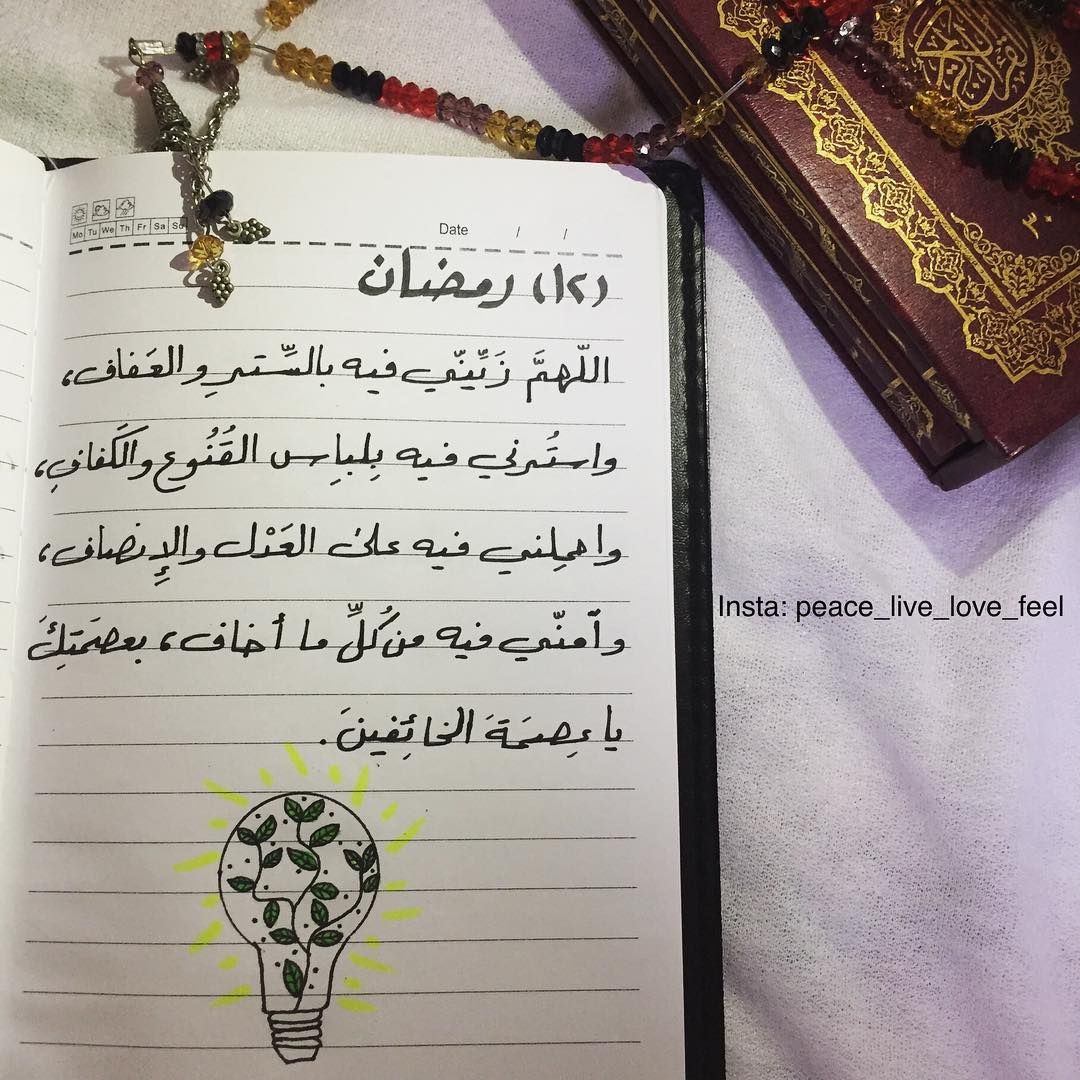 Mo Tu We Th Fr Sa Su
Date / /
(١٢) رمضان
اللّهمَّ زَيِّنّي فيه بالسِّترِ و العَفاف،
واستُرني فيه بِلباسِ القُنُوعِ والكَفافِ،
واحمِلني فيه على العَدْل والإِنصاف،
وآمنّي فيه من كُلِّ ما أخاف، بعصمَتِكَ
يا عِصمَةَ الخائِفينَ.
Insta: peace_live_love_feel
٣٠